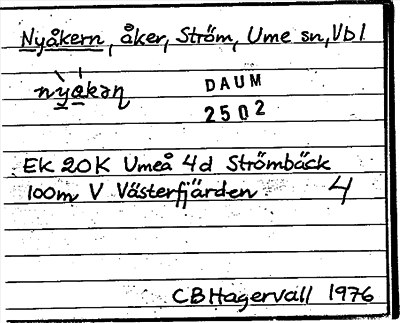 Nyåkern, åker, Ström, Ume sn, Vbl
DAUM
2502
EK 20K Umeå 4d Strömbäck
100m V Västerfjärden 4
CBHagervall 1976